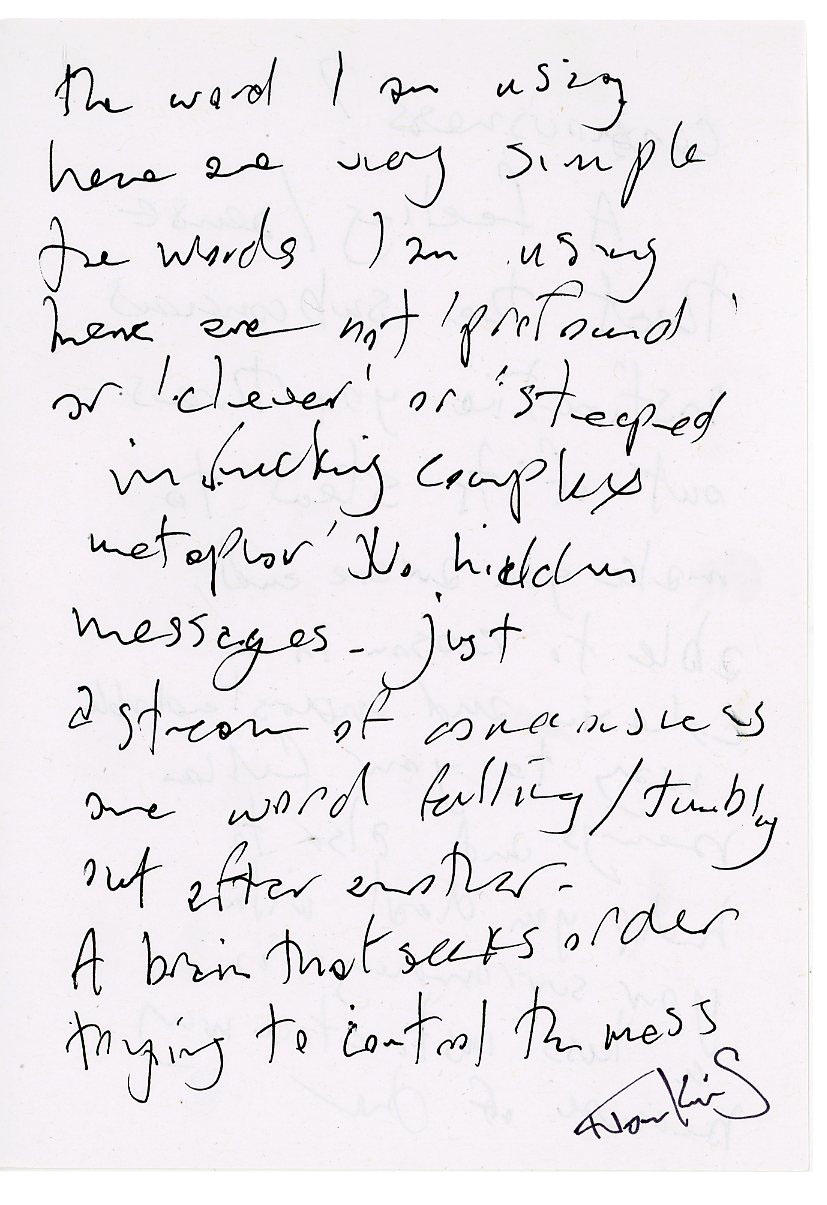 the word I am using
here are very simple
the words I am using
here are not 'profound'
or 'clever' or 'steeped
in fucking complex
metaphor' No hidden
messages - just
a stream of consciousness
one word falling/tumbling
out after another.
A brain that seeks order
trying to control the mess